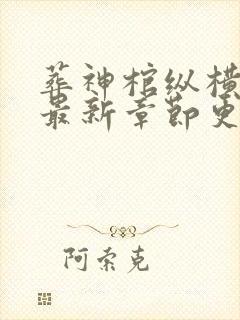 葬神棺纵横
最新章节更
阿索克